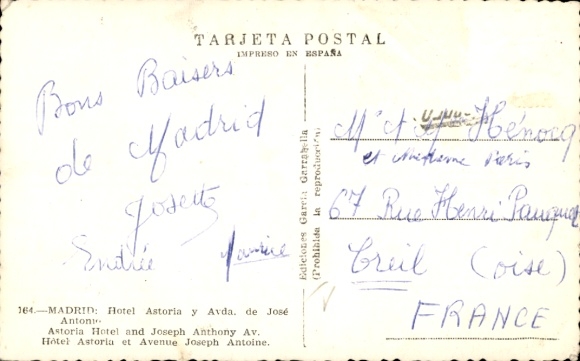 TARJETA POSTAL
IMPRESO EN ESPAÑA
Bons Baisers
de Madrid
Josette
Maurice
Ediciones García Garrabella
(Prohibida la reproducción)
Mr et Mme Hénocq
et Madame
67 Rue Henri Pauquet
Creil (oise)
FRANCE
164.—MADRID: Hotel Astoria y Avda. de José
Antonio
Astoria Hotel and Joseph Anthony Av.
Hôtel Astoria et Avenue Joseph Antoine.